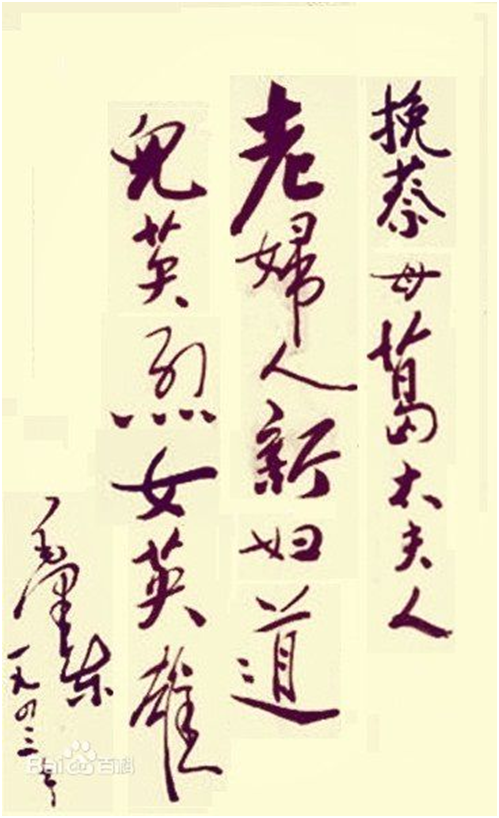 挽蔡母葛太夫人
老婦人新妇道
兒英烈女英雄
毛澤东
一九四三年
Baidu百科